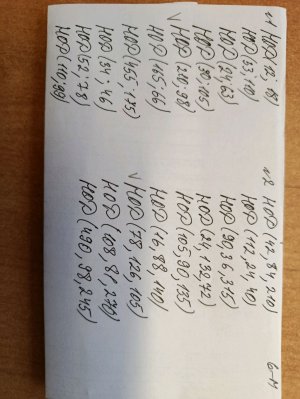 №1 НОД (12; 18)
НОД (24; 63)
НОД (90; 105)
√ НОД (210; 98)
НОД (165; 66)
НОД (455; 175)
НОД (34; 46)
НОД (52; 78)
НОД (110; 99)
№2 НОД (42, 84, 210)
НОД (112, 24, 40)
НОД (90, 36, 315)
НОД (24, 132, 72)
НОД (105, 90, 135)
НОД
√ НОД (78, 126, 105)
НОД (108, 81, 270)
НОД (490, 98, 245)